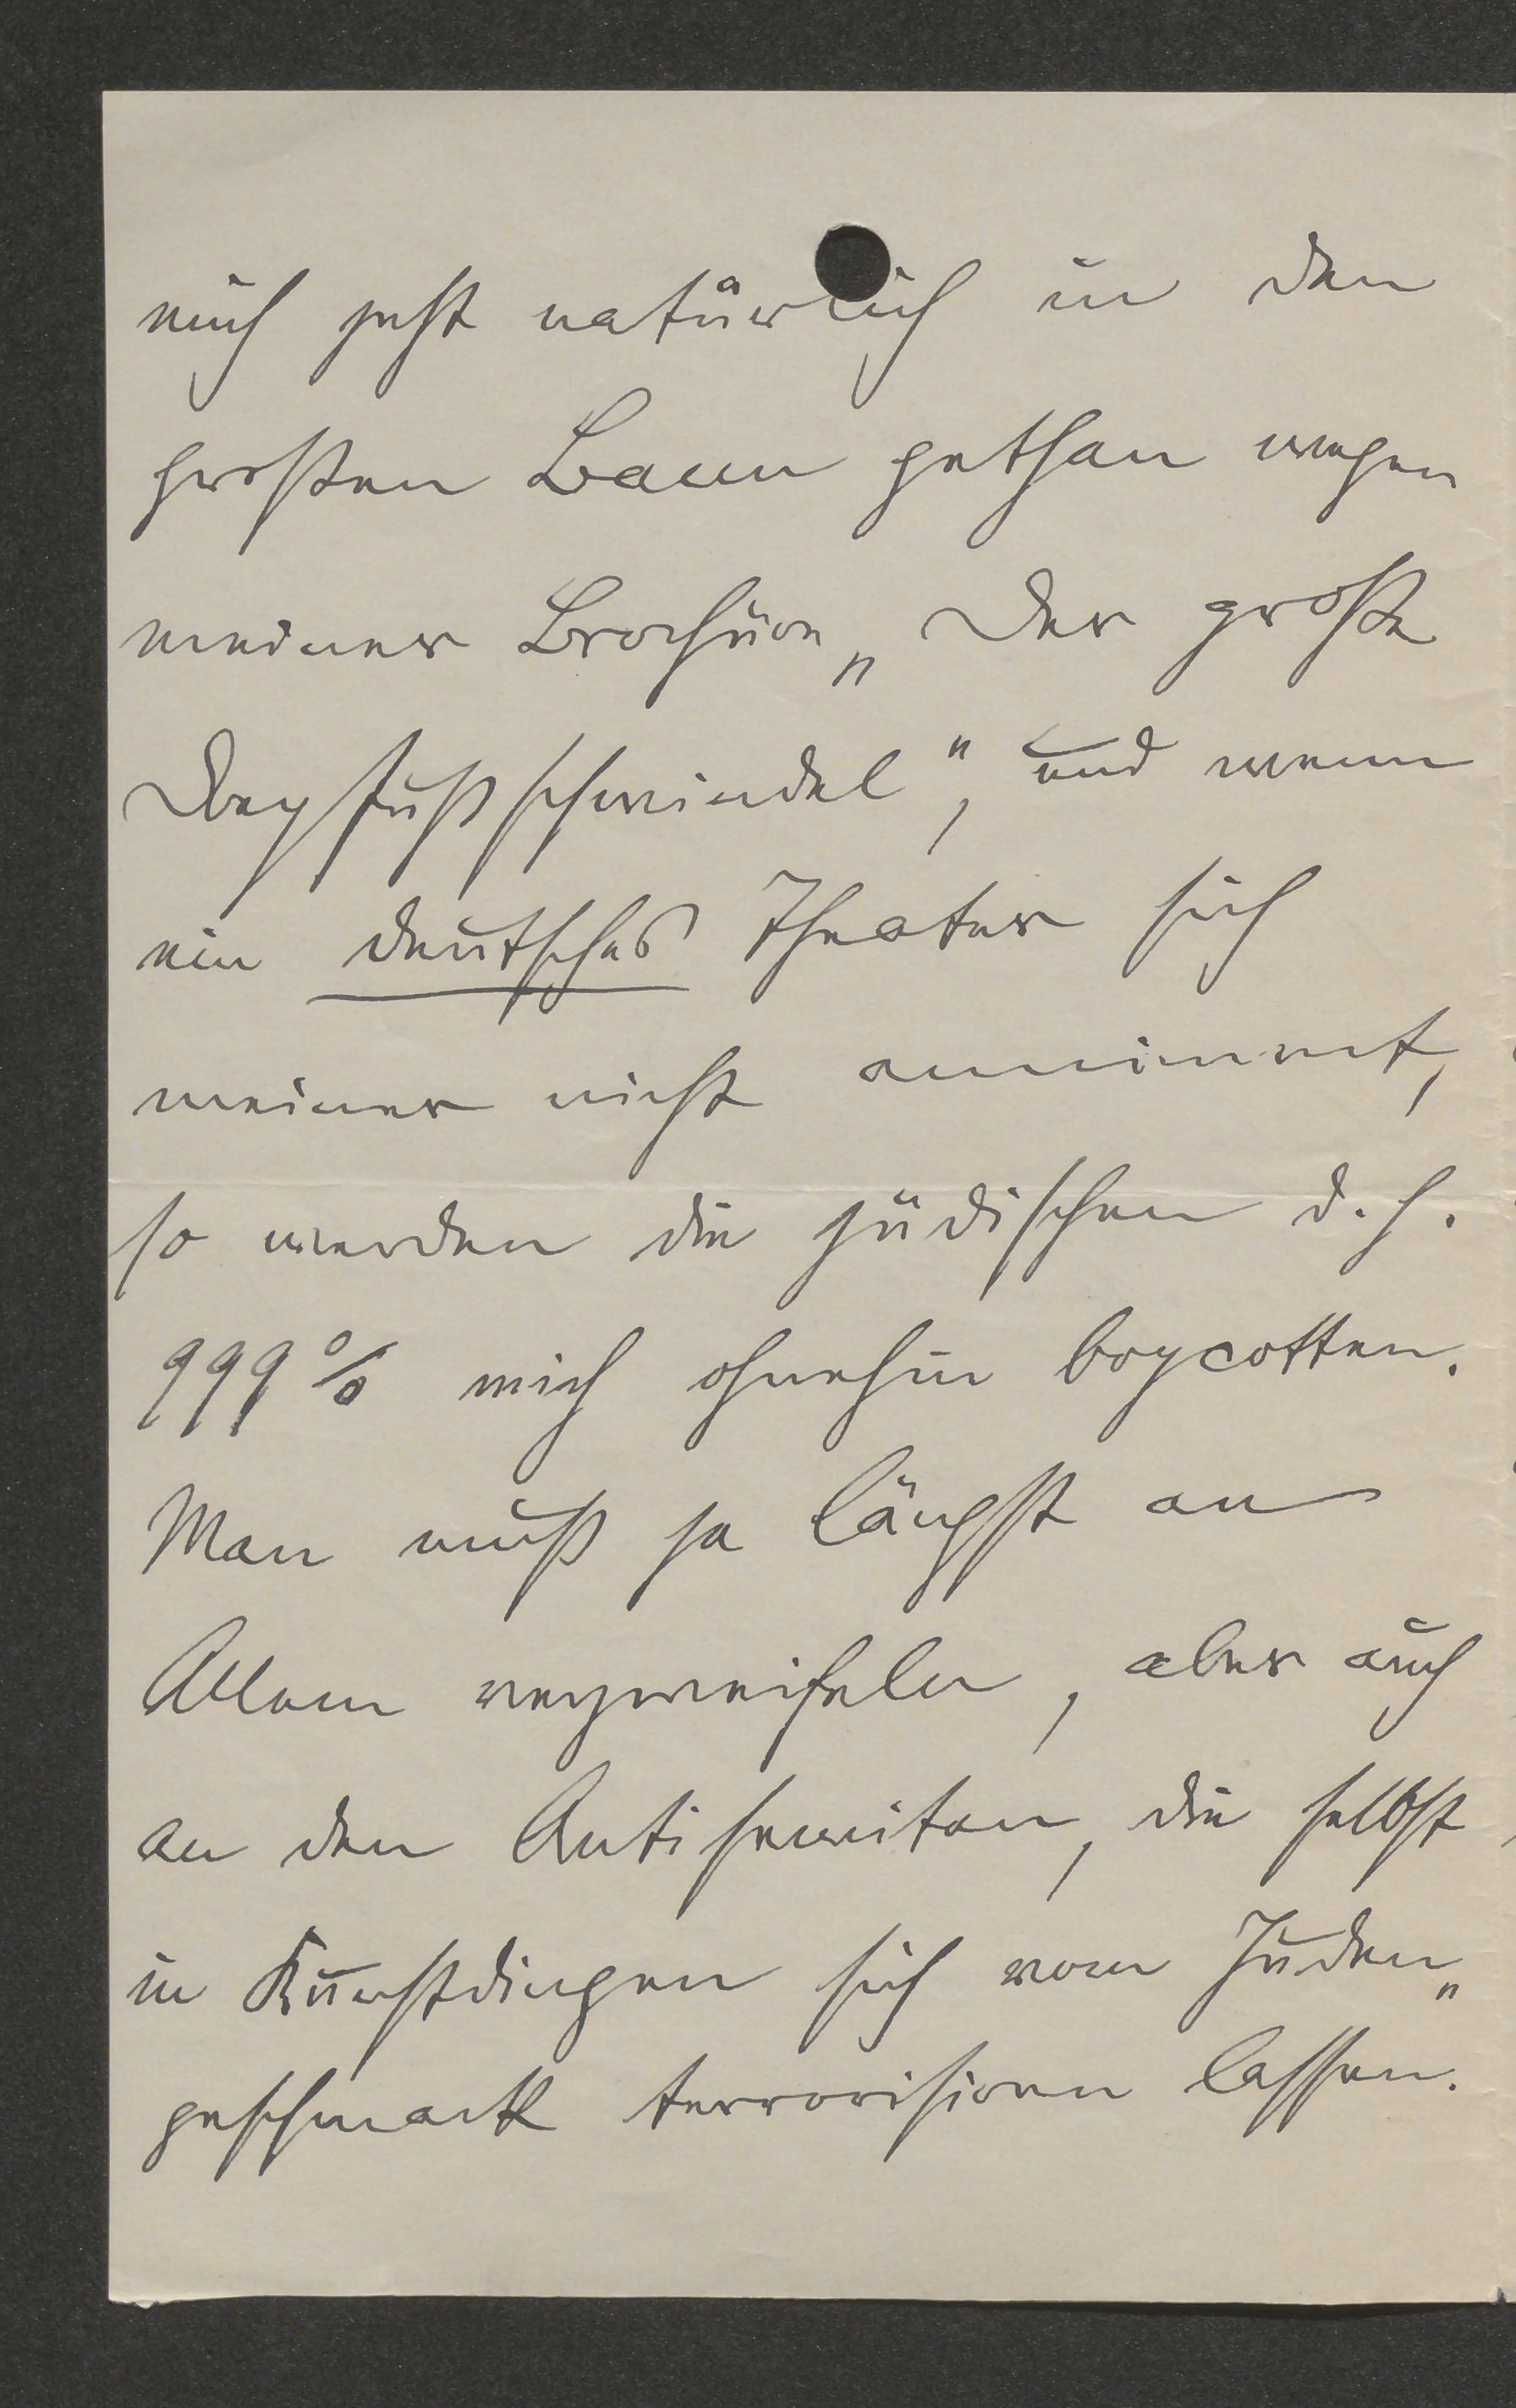 mich jetzt natürlich in den
großen Bann gethan wegen
meiner Brochüre „Der große
Dreyfußschwindel“, und wenn
ein deutsches Theater sich
meiner nicht annimmt,
so werden die jüdischen d. h.
999% mich ohnehin boycotten.
Man muß ja längst an
Allem verzweifeln, aber auch
an den Antisemiten, die selbst
in Kunstdingen sich vom Juden„
geschmack terrorisiren lassen.